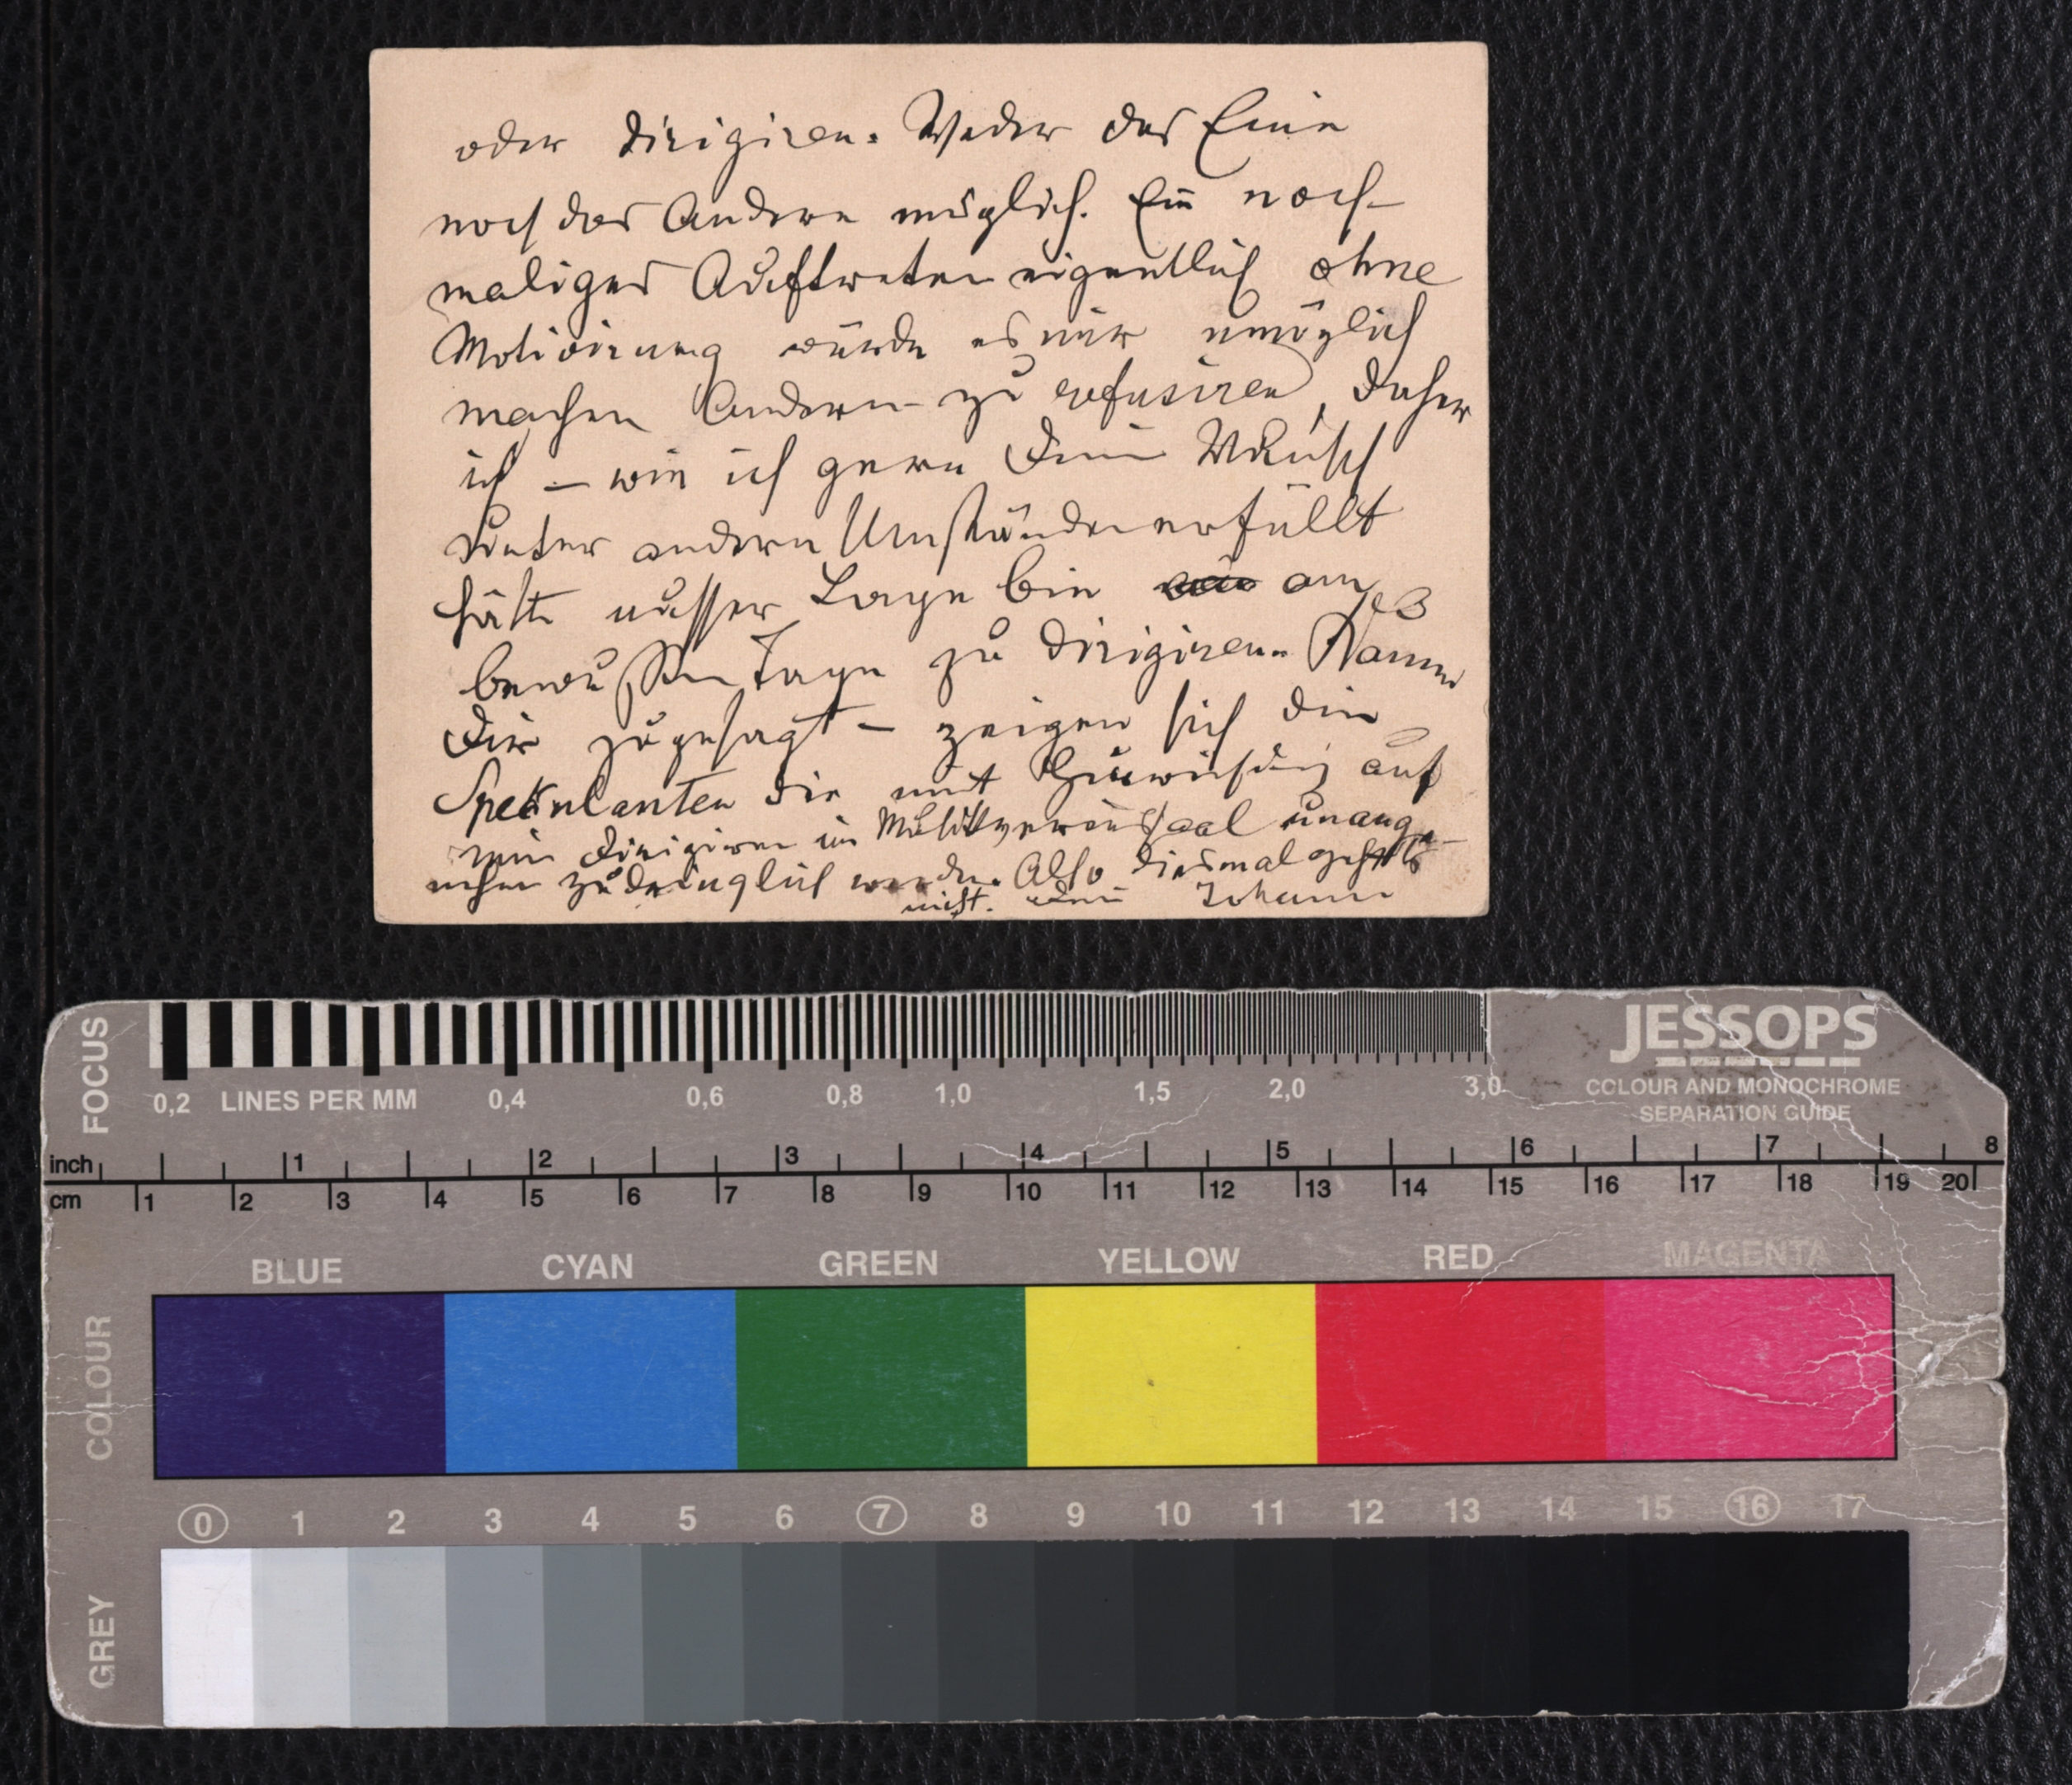 oder dirigiren. Weder das Eine
noch das Andere möglich. Ein noch-
maliges Auftreten eigentlich ohne
Motivirung würde es mir unmöglich
machen Andern zu refusiren, daher
ich – wie ich gern Deinen Wunsch
unter andern Umständen erfüllt
hätte ausser Lage bin am
bewußten Tage zu dirigiren.
Dir zugesagt – zeigen sich die
Spekulanten die mit Hinweisung auf
mein Dirigiren im Musikvereinssaal unange-
nehm zudringlich werden. Also diesmal geht's
nicht. Dein Johann
FOCUS
0,2 LINES PER MM 0,4 0,6 0,8 1,0 1,5 2,0 3,0
JESSOPS
COLOUR AND MONOCHROME
SEPARATION GUIDE
inch 1 2 3 4 5 6 7 8
cm 1 2 3 4 5 6 7 8 9 10 11 12 13 14 15 16 17 18 19 20
BLUE CYAN GREEN YELLOW RED MAGENTA
COLOUR
0 1 2 3 4 5 6 7 8 9 10 11 12 13 14 15 16 17
GREY